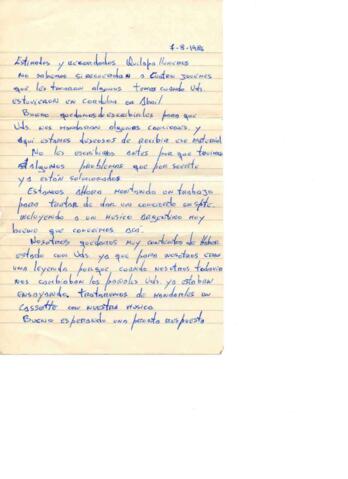 7-8-1986
Estimados y recordados Quilapallunenses
No sabemos si recuerdan a cuatro jóvenes
que les tocaron algunos temas cuando Uds.
estuvieron en Cordoba en Abril
Bueno quedamos de escribirles para que
Uds. nos mandaran algunas canciones, y
aquí estamos deseosos de recibir ese material
No les escribimos antes por que tuvimos
algunos problemas que por suerte
ya están solucionados
Estamos ahora montando un trabajo
para tratar de dar un concierto en Spte.
incluyendo a un musico argentino muy
bueno que conocimos acá.
Nosotros quedamos muy contentos de haber
estado con Uds. ya que para nosotros eran
una leyenda porque cuando nosotros todavia
nos cambiaban los pañales Uds. ya estaban
ensayando, trataremos de mandarles un
cassette con nuestra musica
Bueno esperando una pronta respuesta